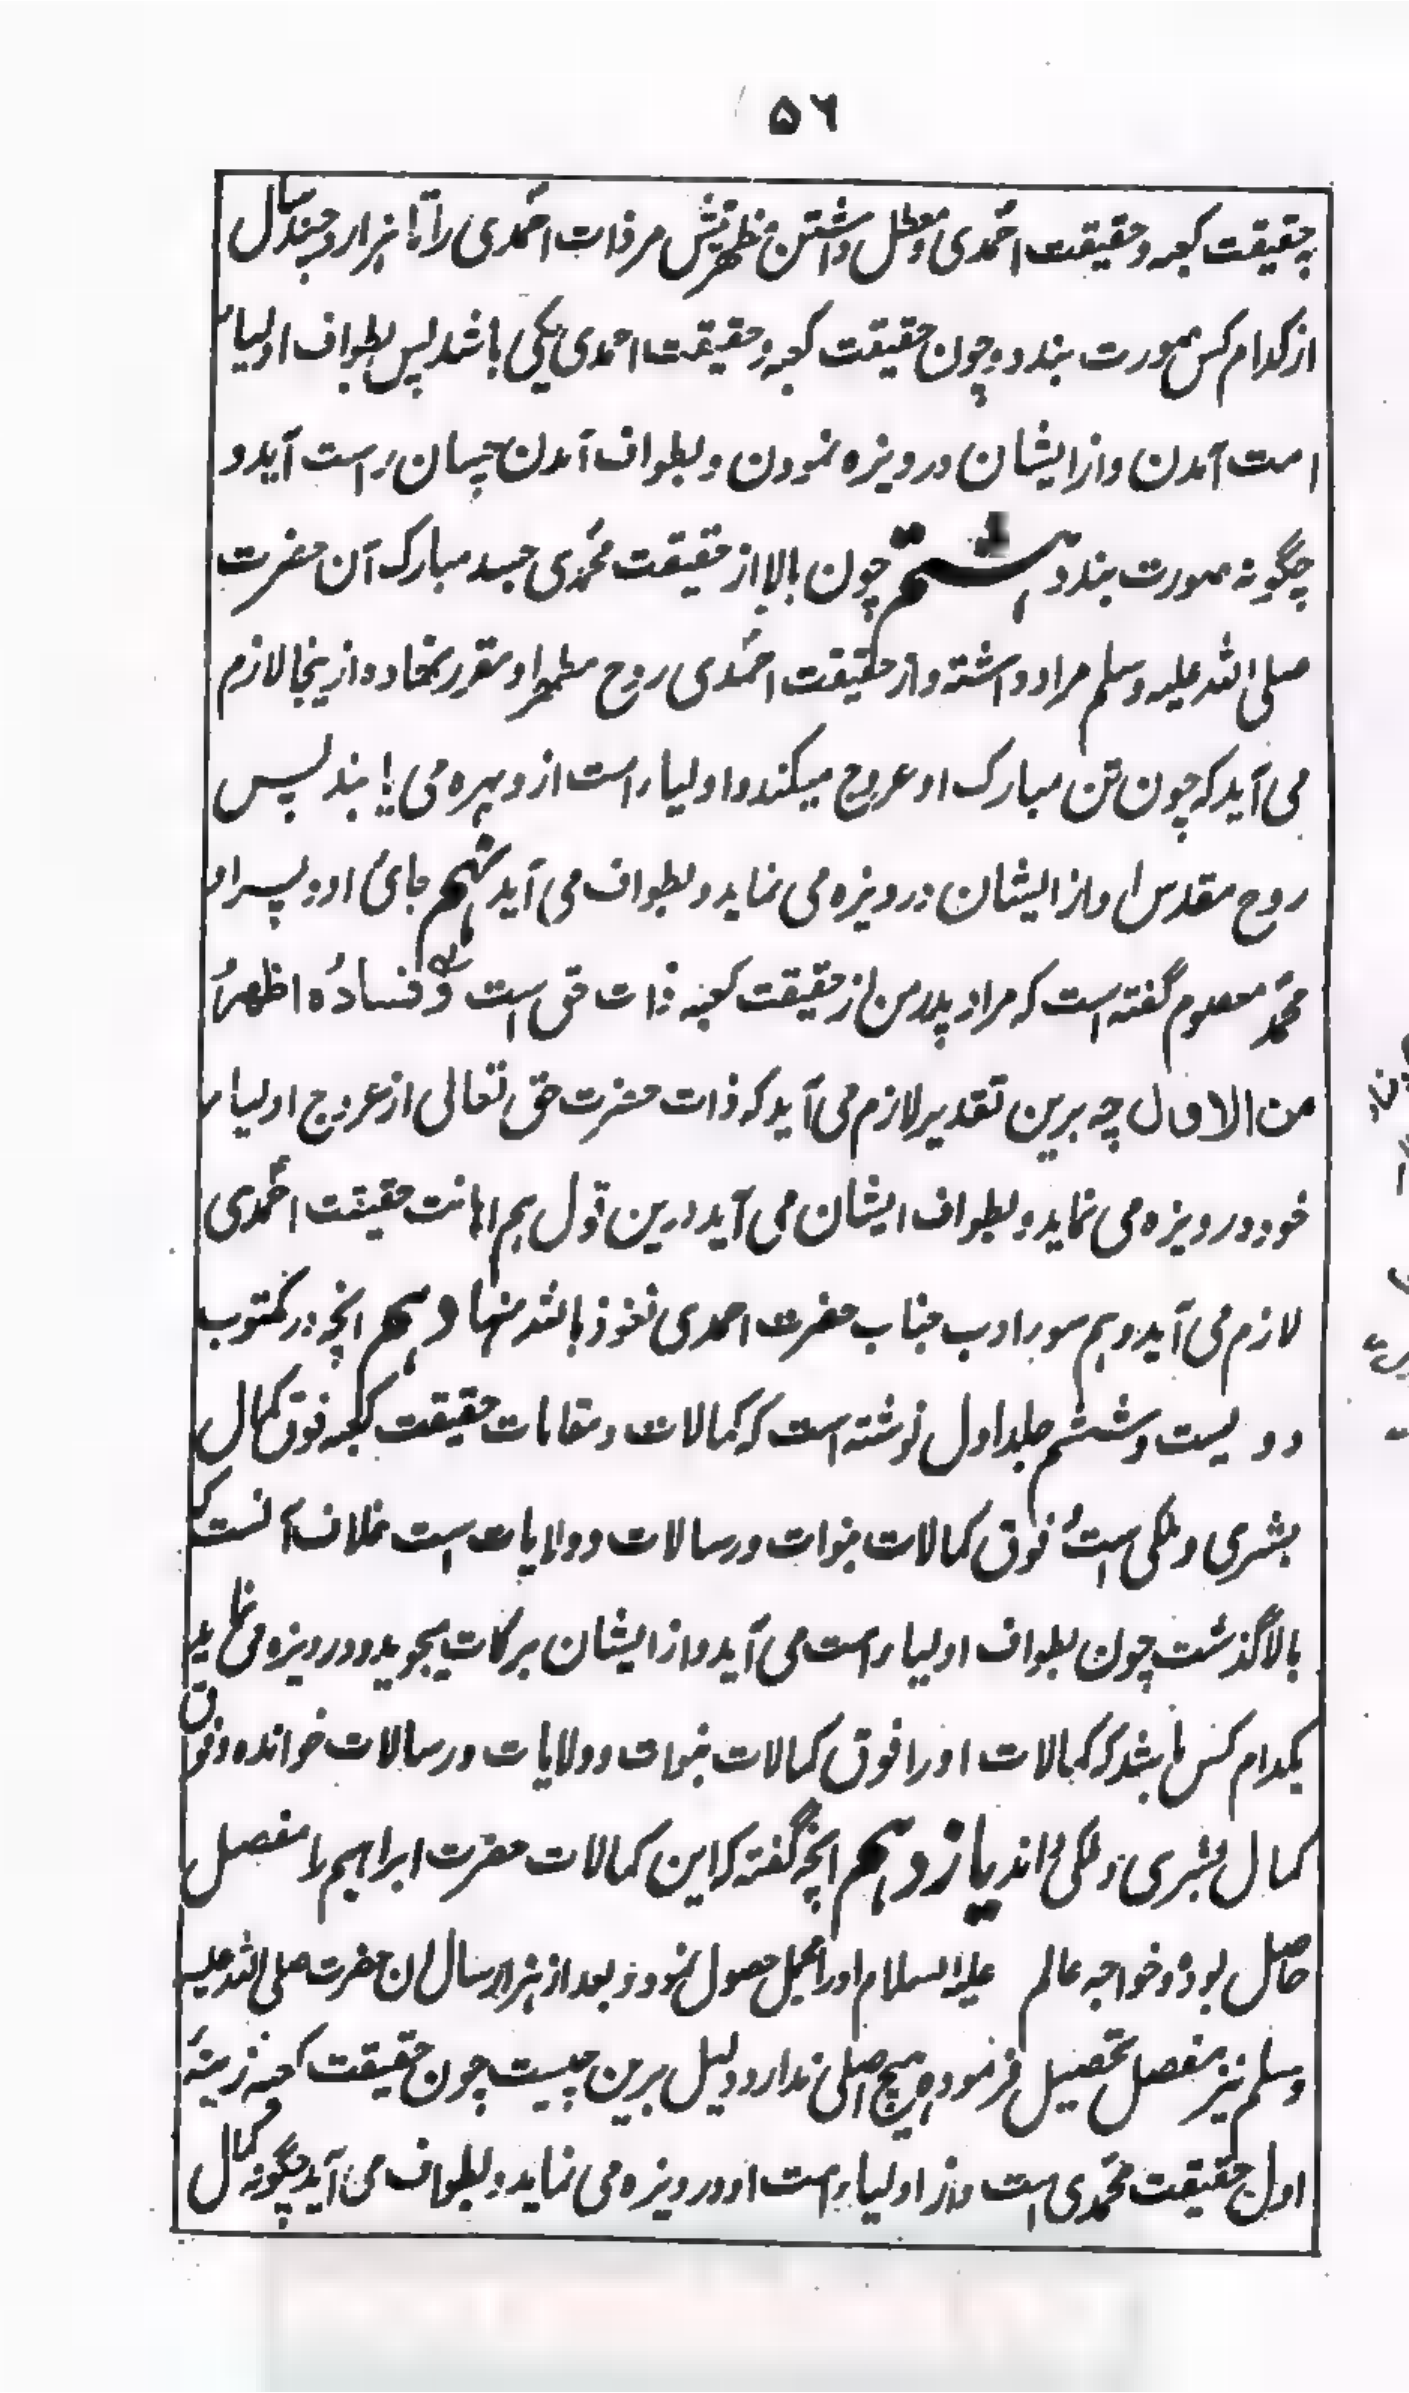 ۵۶
حقیقت کعبه و حقیقت احمدی و معطل داشتن مظهریتش مر ذات احمدی را تا هزار و چند سال
از کدام کس صورت بندد و چون حقیقت کعبه و حقیقت احمدی یکی باشد پس بطواف اولیاء
امت آمدن و از ایشان دریوزه نمودن و بطواف آمدن چسان راست آید و
چگونه صورت بندد هشتم چون بالا از حقیقت محمدی جسد مبارک آن حضرت
صلی الله علیه وسلم مراد داشته و از حقیقت احمدی روح مطهر او مقرر نهاده از ینجا لازم
می آید که چون تن مبارک او عروج میکند و اولیاء امت از و بهره می یابند پس
روح مقدس او از ایشان درویزه می نماید و بطواف می آید نهم جای او و پسر او
محمد معصوم گفته است که مراد پدر من از حقیقت کعبه ذات حق است و فساده اظهر
من الاول چه برین تقدیر لازم می آید که ذات حضرت حق تعالی از عروج اولیاء
خود درویزه می نماید و بطواف ایشان می آید درین قول هم اهانت حقیقت احمدی
لازم می آید و هم سوء ادب جناب حضرت احمدی نعوذ بالله منها دهم انچه در مکتوب
دو بیست و ششم جلد اول نوشته است که کمالات و مقامات حقیقت کعبه فوق کمال
بشری و ملکی است فوق کمالات نبوات و رسالات و ولایات است خلاف آنست که
بالا گذشت چون بطواف اولیاء امت می آید و از ایشان برکات بجوید و درویزه می نماید
بکدام کس باشد که کمالات او را فوق کمالات نبوات و ولایات و رسالات خوانده و فوق
کمال بشری و ملکی اند یازدهم انچه گفته که این کمالات حضرت ابراهیم را مفصل
حاصل بود و خواجه عالم علیه السلام او را مجمل حصول نمود و بعد از هزار سال آن حضرت صلی الله علیه
وسلم نیز مفصل تحصیل فرموده هیچ اصلی ندارد و دلیل برین چیست چون حقیقت کعبه زینهٔ
اول حقیقت محمدی است و از اولیاء امت او درویزه می نماید و بطواف می آید چگونه کمال